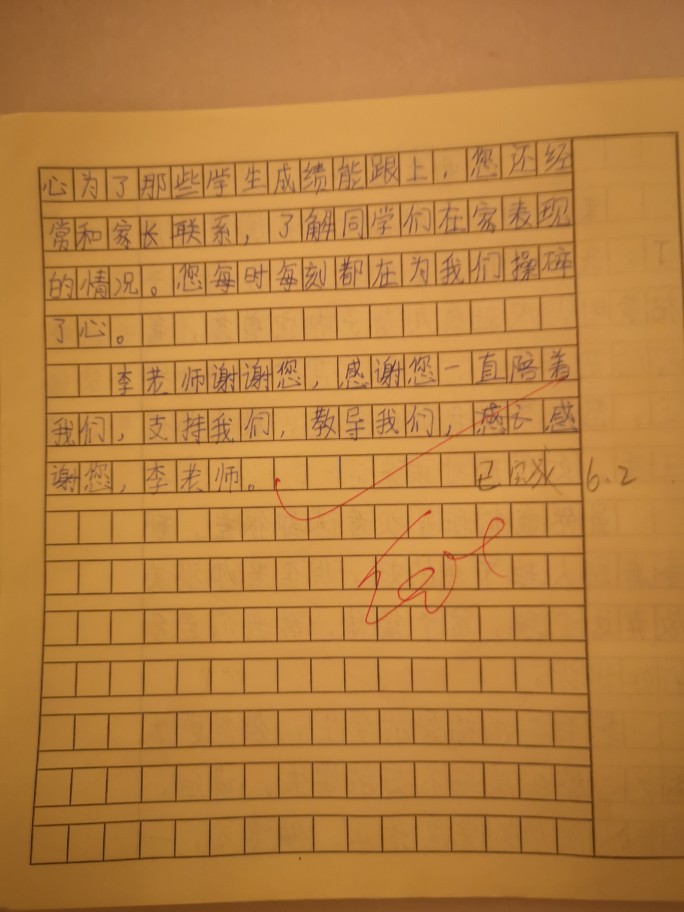 心为了那些学生成绩能跟上，您还经
常和家长联系，了解同学们在家表现
的情况。您每时每刻都在为我们操碎
了心。
李老师谢谢您，感谢您一直陪着
我们，支持我们，教导我们，感 感
谢您，李老师。
已完成 6.2